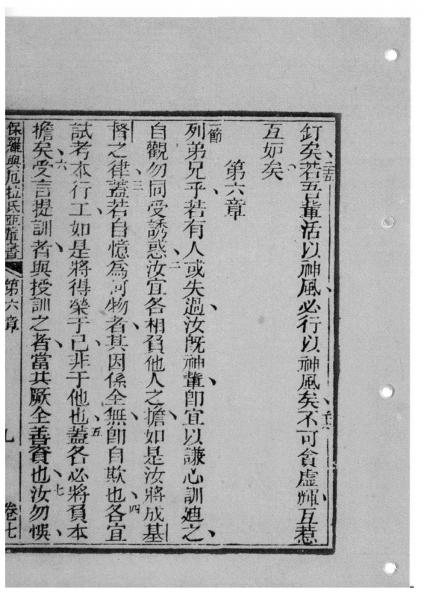 釘矣若吾輩活以神風必行以神風矣不可貪虛輝互惹
互妒矣
第六章
列弟兄乎若有人或失過汝旣神輩卽宜以謙心訓廸之
自觀勿同受誘惑汝宜各相負他人之擔如是汝將成基
督之律蓋若自憶為何物者其因係全無卽自欺也各宜
試考本行工如是將得榮于己非于他也蓋各必將負本
擔矣受言提訓者與授訓之者當共厥全善資也汝勿悞
保羅與厄拉氏亞輩書 第六章 九 卷七